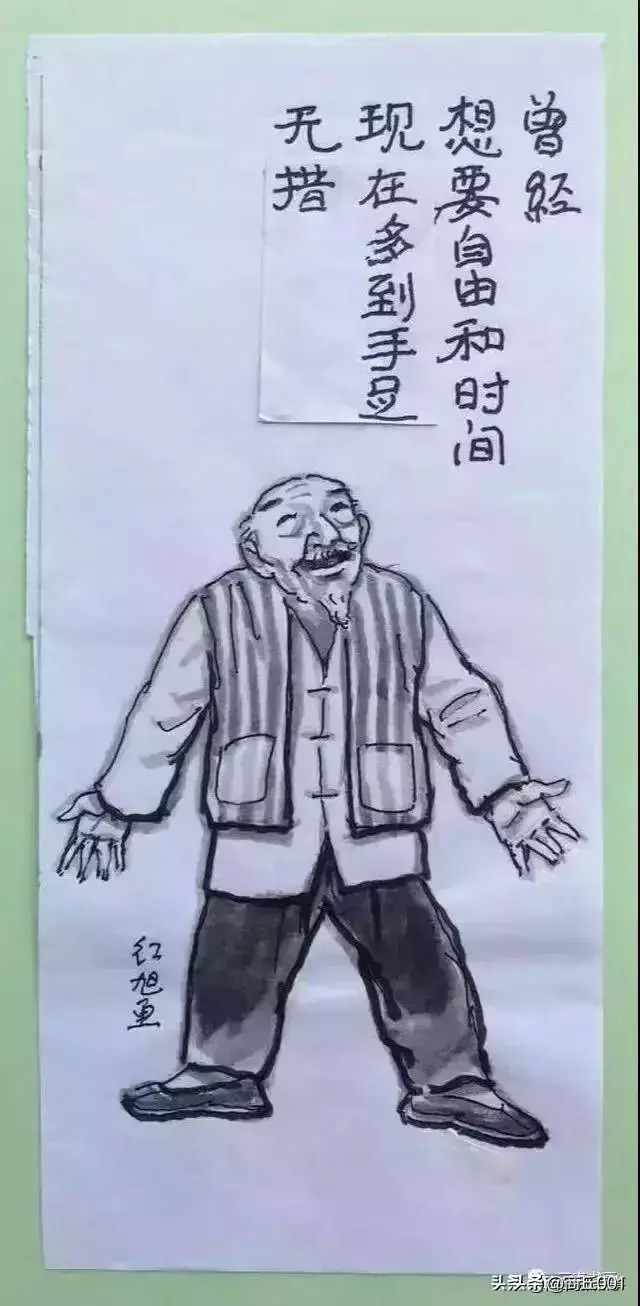 曾经
想要自由和时间
现在多到手足
无措
红旭画
头条@尚丘001